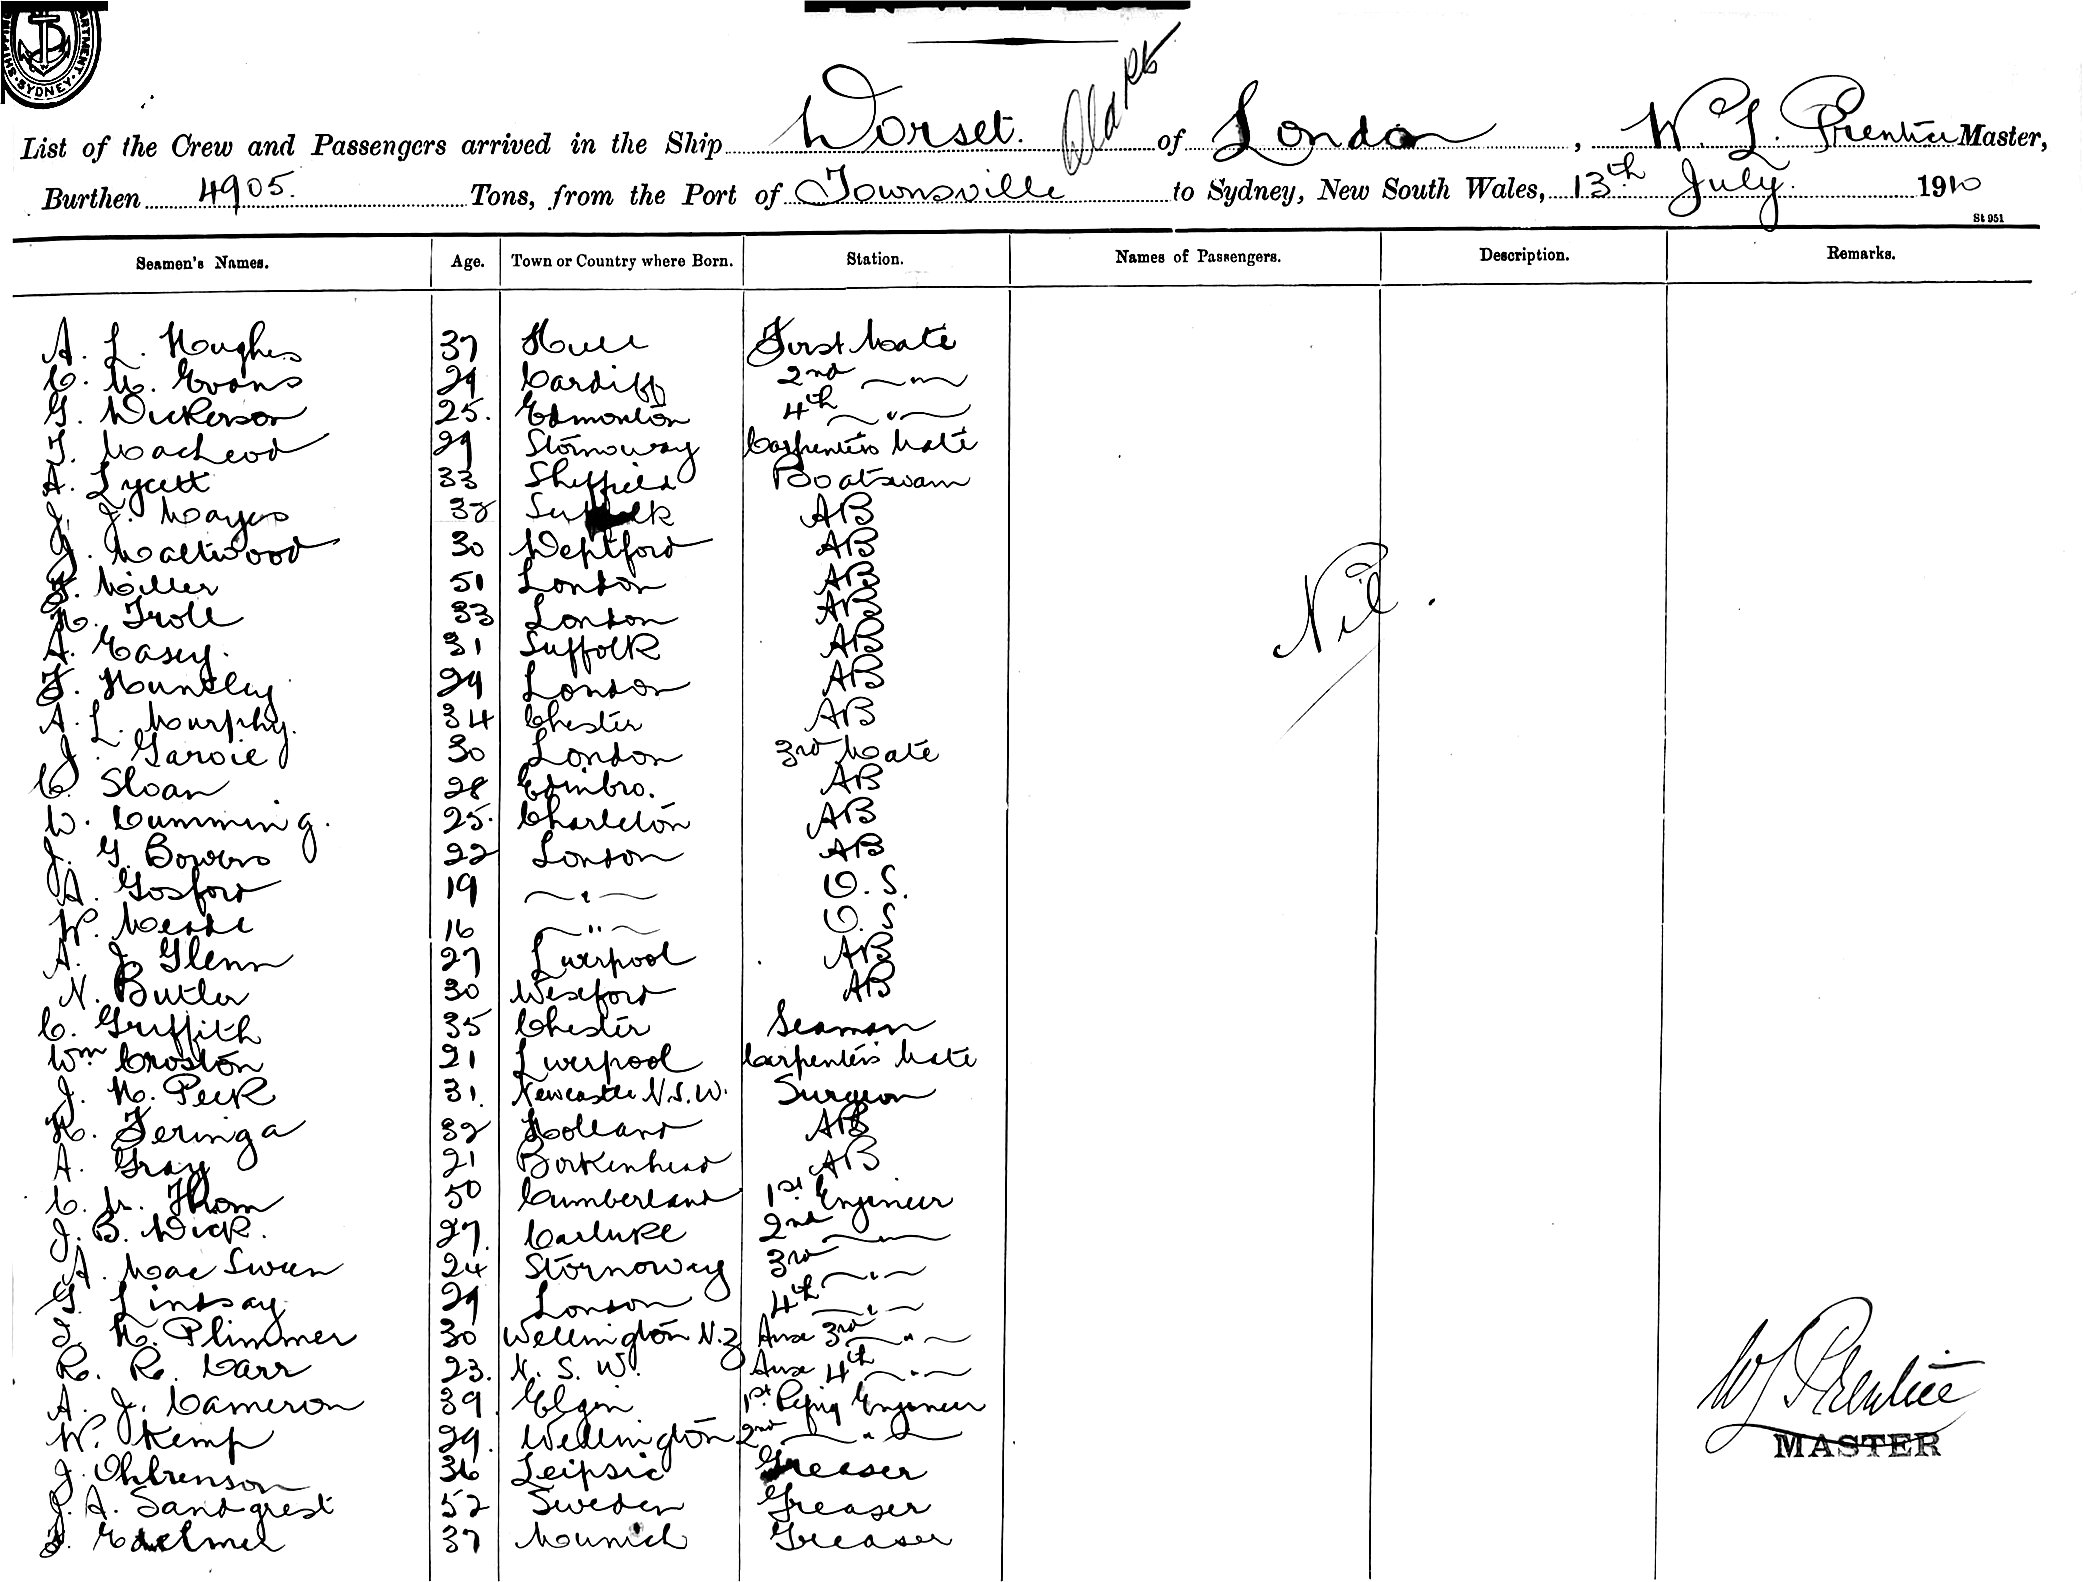 SYDNEY
List of the Crew and Passengers arrived in the Ship Dorset. of London, W. L. Prentice Master,
Burthen 4905. Tons, from the Port of Townsville to Sydney, New South Wales, 13th July. 1910
St 951
Seamen's Names. Age. Town or Country where Born. Station. Names of Passengers. Description. Remarks.
A. L. Hughes 37 Hull First Mate
C. M. Evans 29 Cardiff 2nd "
G. Dickerson 25. Edmonton 4th "
T. MacLeod 29 Stornoway Carpenters Mate
A. Lycett 33 Sheffield Boatswain
J. J. Mayes 32 Suffolk AB
J. Maltwood 30 Deptford AB
F. Miller 51 London AB
H. Troll 33 London AB
A. Easey. 31 Suffolk AB
F. Huntley 29 London AB
A. L. Murphy. 34 Chester AB
J. Garvie 30 London 3rd Mate
C. Sloan 28 Edinbro. AB
W. Cumming. 25. Charleton AB
J. G. Bowers 22 London AB
A. Gosford 19 " O. S.
W. 16 " O. S.
A. J. Glenn 27 Liverpool AB
N. Butler 30 Wexford AB
C. Griffith 35 Chester Seaman
Wm Croston 21 Liverpool Carpenters Mate
J. H. Peek 31. Newcastle N.S.W. Surgeon
H. Feringa 32 Holland AB
A. Gray 21 Birkenhead AB
C. Thom 50 Cumberland 1st Engineer
J. B. Dick. 27. Carluke 2nd
A. MacSween 24 Stornoway 3rd "
G. Lindsay 29 London 4th "
H. Plimmer 30 Wellington N.Z Aux 3rd "
R. R. Carr 23. N. S. W. Aux 4th "
A. J. Cameron 39 Elgin 1st Refrig Engineer
W. Kemp 29. Wellington 2nd "
J. Ohlrenson 36 Leipsic Greaser
J. A. Sandgrest 52 Sweden Greaser
37 Munich Greaser
Nil.
W L Prentice
MASTER